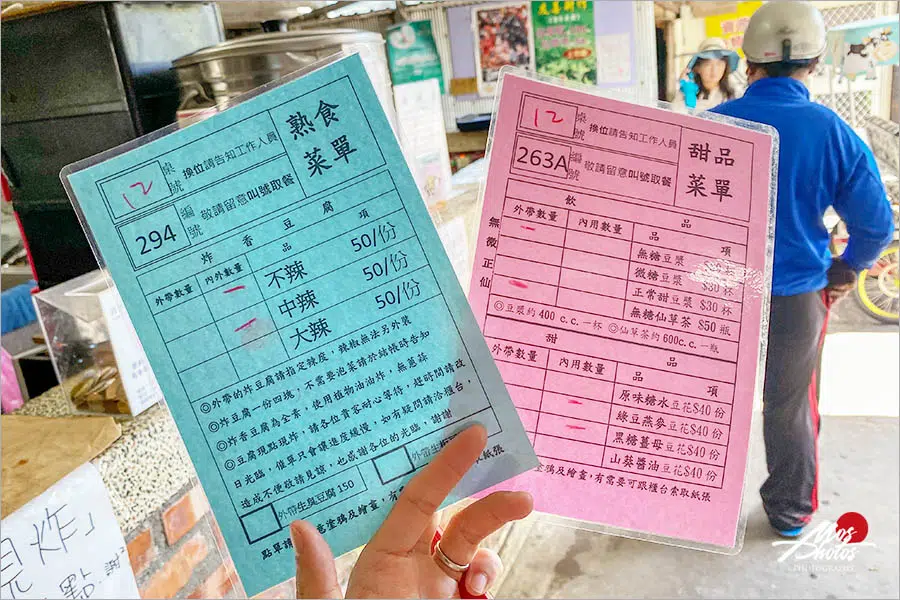 熟食
菜單
12
桌號
換位請告知工作人員
294
編號
敬請留意叫號取餐
炸香豆腐
外帶數量 內外數量 品項
不辣 50/份
中辣 50/份
大辣 50/份
◎外帶的炸豆腐請指定辣度,辣椒無法另外裝
◎炸豆腐一份四塊,不需要泡菜請於結帳時告知
◎炸香豆腐為全素,使用植物油油炸,無蔥蒜
◎豆腐現點現炸,請各位貴客耐心等待,趕時間請改
日光臨,催單只會讓進度緩慢,如有疑問請洽櫃台,
造成不便敬請見諒,也感謝各位的光臨,謝謝
外帶生臭豆腐 150
點單請
塗鴉及繪畫,有
取紙張
甜品
菜單
12
桌號
換位請告知工作人員
263A
編號
敬請留意叫號取餐
飲
外帶數量 內用數量 品項
無糖豆漿
微糖豆漿 $30杯
正常甜豆漿 $30杯
無糖仙草茶 $50瓶
無
微
正
仙
◎豆漿約400 c.c.一杯 ◎仙草茶約600c.c.一瓶
甜
外帶數量 內用數量 品項
原味糖水豆花$40份
綠豆燕麥豆花$40份
黑糖薑母豆花$40份
山葵醬油豆花$40份
塗鴉及繪畫,有需要可跟櫃台索取紙張
炸」
點
謝
Mos
Photos
PHOTOGRAPHY